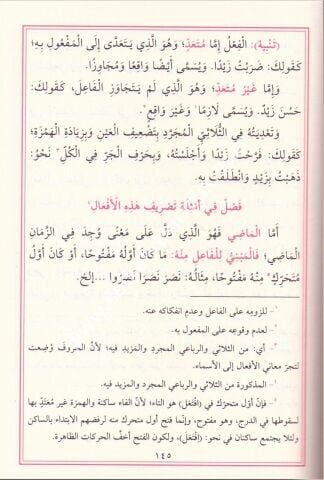 (تَنْبِيهٌ): الْفِعْلُ إِمَّا مُتَعَدٍّ؛ وَهُوَ الَّذِي يَتَعَدَّى إِلَى الْمَفْعُولِ بِهِ؛
كَقَوْلِكَ: ضَرَبْتُ زَيْدًا. وَيُسَمَّى أَيْضًا وَاقِعًا وَمُجَاوِزًا.
وَإِمَّا غَيْرُ مُتَعَدٍّ؛ وَهُوَ الَّذِي لَمْ يَتَجَاوَزِ الْفَاعِلَ، كَقَوْلِكَ:
حَسُنَ زَيْدٌ. وَيُسَمَّى لَازِمًا ١ وَغَيْرَ وَاقِعٍ ٢.
وَتَعْدِيَتُهُ فِي الثُّلَاثِيِّ الْمُجَرَّدِ بِتَضْعِيفِ الْعَيْنِ وَبِزِيَادَةِ الْهَمْزَةِ؛
كَقَوْلِكَ: فَرَّحْتُ زَيْدًا وَأَجْلَسْتُهُ، وَبِحَرْفِ الْجَرِّ فِي الْكُلِّ ٣ نَحْوُ:
ذَهَبْتُ بِزَيْدٍ وَانْطَلَقْتُ بِهِ.
فَصْلٌ فِي أَمْثِلَةِ تَصْرِيفِ هَذِهِ الْأَفْعَالِ ٤
أَمَّا الْمَاضِي فَهُوَ الَّذِي دَلَّ عَلَى مَعْنًى وُجِدَ فِي الزَّمَانِ
الْمَاضِي؛ فَالْمَبْنِيُّ لِلْفَاعِلِ مِنْهُ: مَا كَانَ أَوَّلُهُ مَفْتُوحًا، أَوْ كَانَ أَوَّلُ
مُتَحَرِّكٍ ٥ مِنْهُ مَفْتُوحًا، مِثَالُهُ: نَصَرَ نَصَرَا نَصَرُوا ...إلخ.
١- للزومه على الفاعل وعدم انفكاكه عنه.
٢- لعدم وقوعه على المفعول به.
٣- أي: من الثلاثي والرباعي المجرد والمزيد فيه؛ لأنَّ الحروف وُضِعت
لتجرّ معاني الأفعال إلى الأسماء.
٤- المذكورة من الثلاثي والرباعي المجرد والمزيد فيه.
٥- فإنَّ أوّل متحرّك في (افْتَعَلَ) هو التاء؛ لأنَّ الفاء ساكنة والهمزة غير مُعتَدٍّ بها
لسقوطها في الدرج، وهو مفتوح، وإنَّما فتح أول متحرك منه لرفضهم الابتداء بالساكن
ولئلا يجتمع ساكنان في نحو: (افْتَعَلَ)، ولكون الفتح أخفّ الحركات الظاهرة.
١٤٥